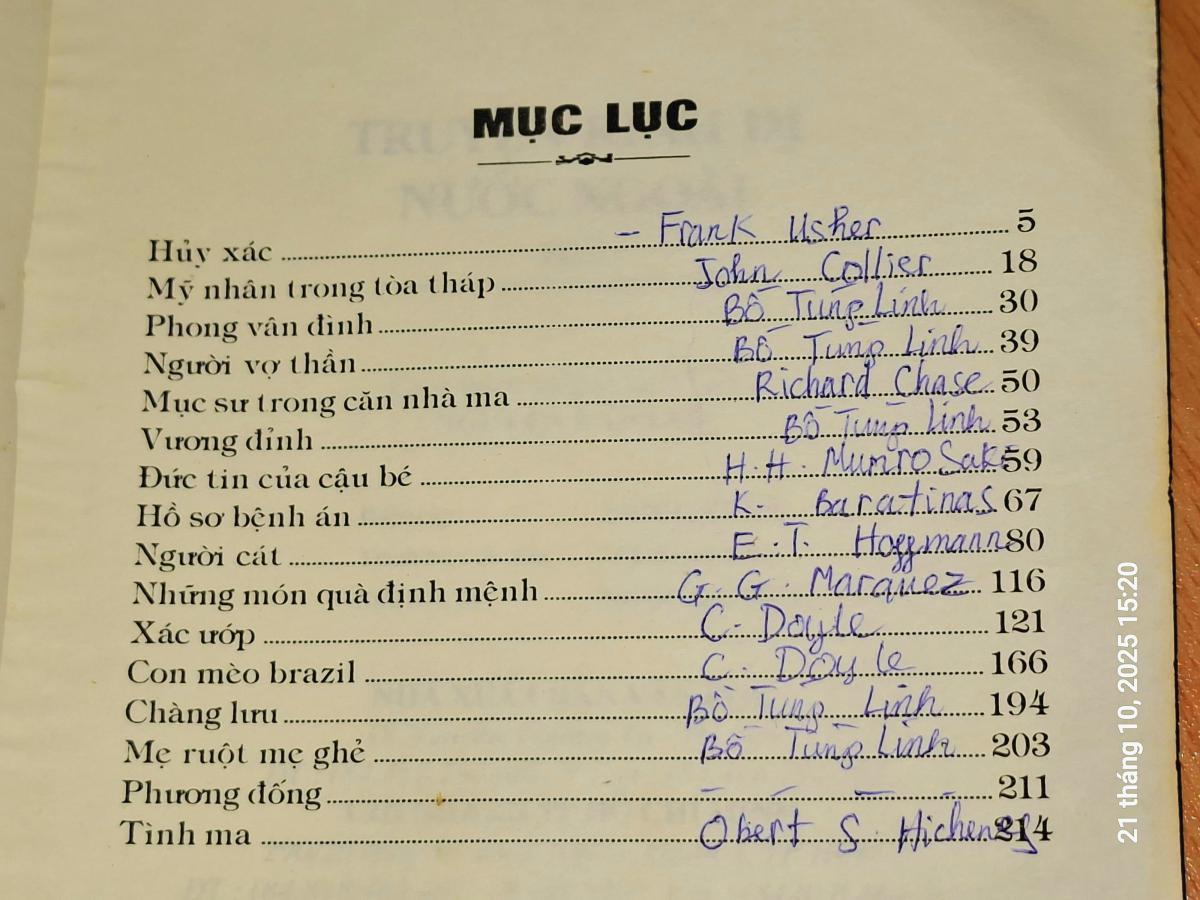 MỤC LỤC
Hủy xác - Frank Usher 5
Mỹ nhân trong tòa tháp John Collier 18
Phong vân đình Bồ Tùng Linh 30
Người vợ thần Bồ Tùng Linh 39
Mục sư trong căn nhà ma Richard Chase 50
Vương đỉnh Bồ Tùng Linh 53
Đức tin của cậu bé H.H. Munro Saki 59
Hồ sơ bệnh án K. Baratinas 67
Người cát E.T. Hoffmann 80
Những món quà định mệnh G.G. Marquez 116
Xác ướp C. Doyle 121
Con mèo brazil C. Doyle 166
Chàng lưu Bồ Tùng Linh 194
Mẹ ruột mẹ ghẻ Bồ Tùng Linh 203
Phương đống - - - - 211
Tình ma Obert S Hichens 214
21 tháng 10, 2025 15:20